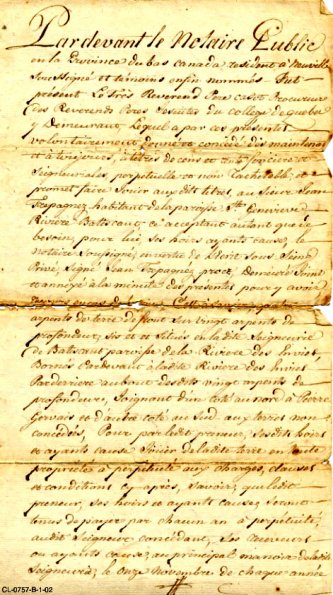 Pardevant le Notaire Public
en la Province du bas Canada résident à Neuville
Soussigné et témoins enfin nommés. Fut
présent Le très Reverend Pere Casot Procureur
des Reverends Peres Jesuites du College de quebec
y Demeurant, Lequel a par ces presentes
volontairement donné et concédé dès maintenant
et à toujours, à titres de cens et rente foncière et
Seigneuriale perpetuelle et non Rachetable, et
promet faire Jouir aux dit titres, au Sieur Jean
Trepagnez habitant de la paroisse Ste Genevieve
Riviere Batiscant, ce acceptant autant que
besoin pour lui, ses hoirs ayants cause, le
notaire Soussigné, en vertu de Seing
Privé, Signé Jean Trepagnez proct. Demeuré Joint
et annexé à la minute des presentes pour y avoir
recours
arpents de terre de front sur vingt arpents de
profondeur, Sis et et Situés en la dite Seigneurie
de Batiscant paroisse de la Riviere des Envies,
Bornés Pardevant à la dite Riviere des Envies
Parderriere au bout des dits vingt arpents de
profondeur, Joignant d'un coté au nord à Pierre
Gervais et d'autre coté au Sud aux terres non
concédés, Pour par ledit preneur, Ses dits hoirs
et ayants cause Jouir de la dite terre en toute
propriété à perpétuité aux Charges, clauses
et conditions cy après, Savoir, que ledit
preneur, Ses hoirs et ayants cause, Seront
tenus de payer par chacun an à perpétuité,
audit Seigneur concédant, Ses receveurs
ou ayants cause, au principal manoir de la dite
Seigneurie, le onze Novembre de chaque année
CL-0757-B-1-02